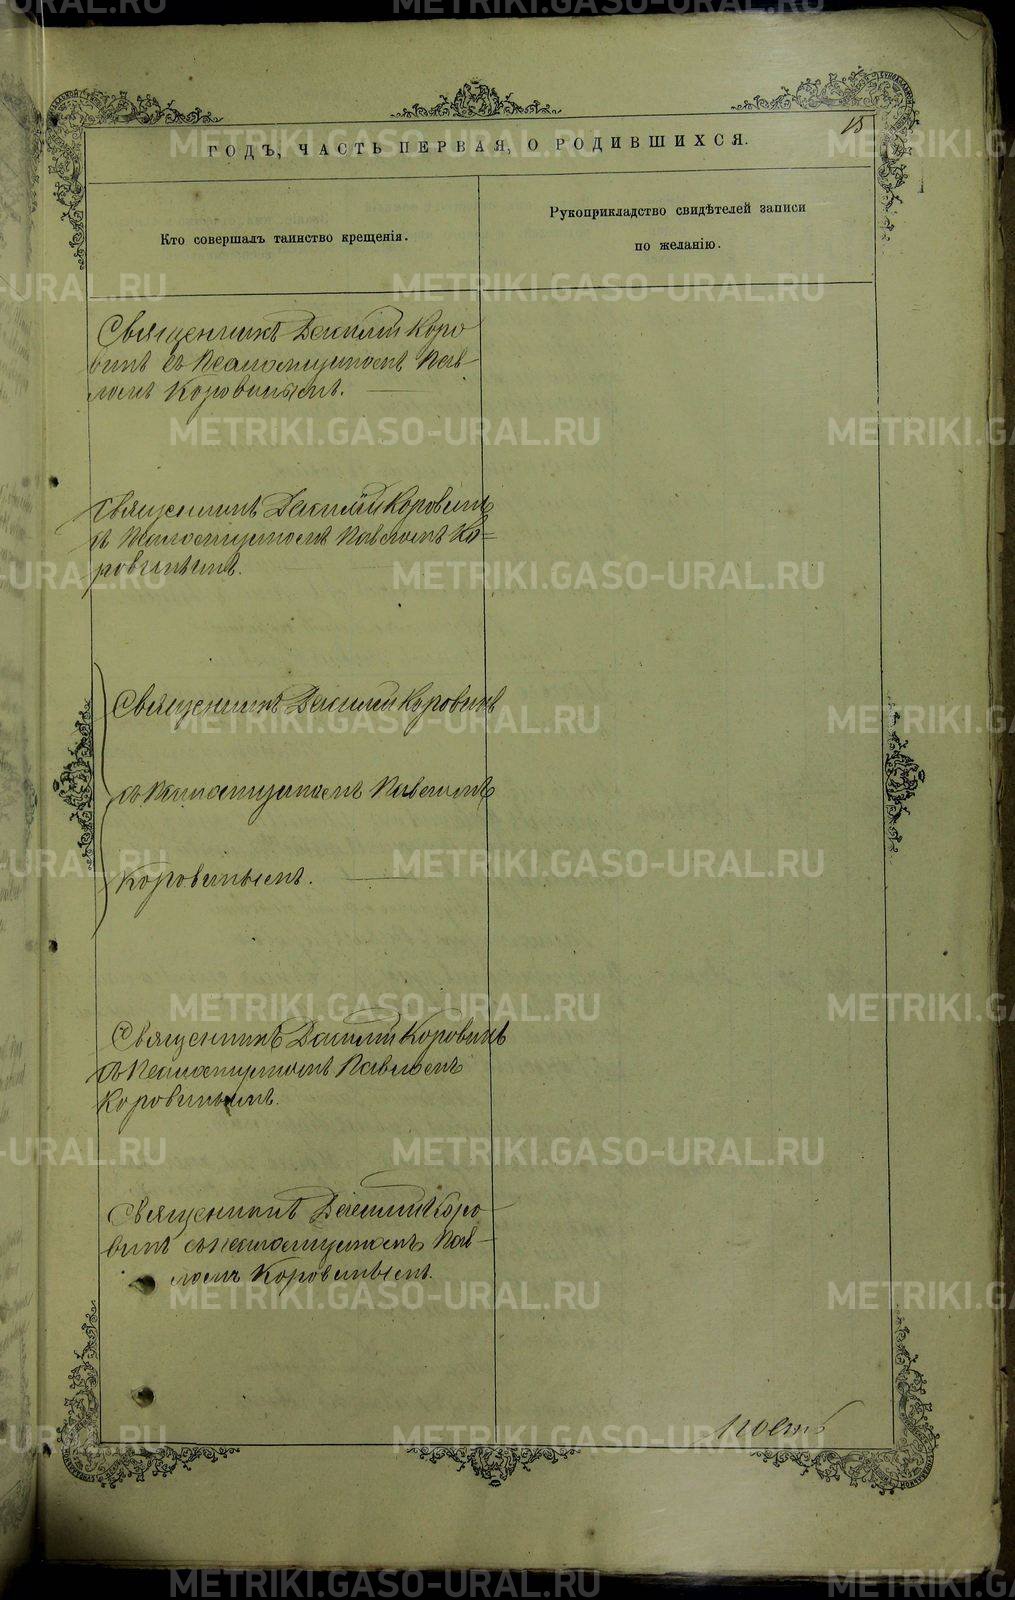 15
ГОДЪ, ЧАСТЬ ПЕРВАЯ, О РОДИВШИХСЯ.
Кто совершалъ таинство крещенія.
Рукоприкладство свидѣтелей записи
по желанію.
Священникъ Василій Коро
винъ съ Псаломщикомъ Пав-
ломъ Коровинымъ.
Священникъ Василій Коровинъ
съ Псаломщикомъ Павломъ Ко=
ровинымъ.
Священникъ Василій Коровинъ
съ Псаломщикомъ Павломъ
Коровинымъ.
Священникъ Василій Коровинъ
съ Псаломщикомъ Павломъ
Коровинымъ.
Священникъ Василій Коро
винъ съ псаломщикомъ Пав-
ломъ Коровинымъ.
METRIKI.GASO-URAL.RU